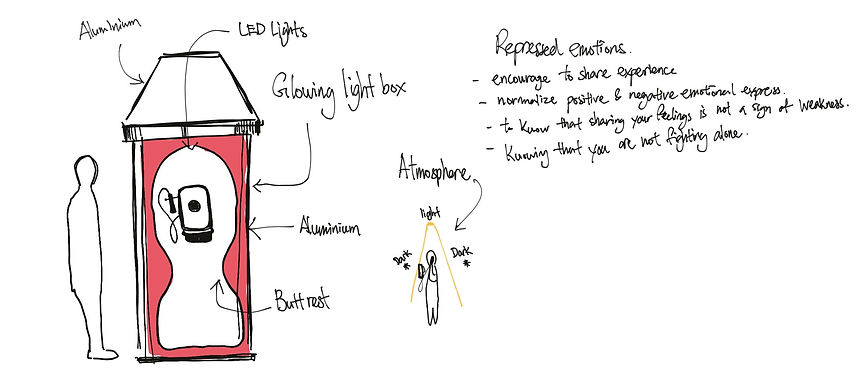 Aluminium
LED Lights
Glowing light box
Aluminium
Butt rest
Atmosphere
light
Dark
*
Dark
*
Repressed emotions.
- encourage to share experience
- normalize positive & negative emotional express.
- to know that sharing your feelings is not a sign of weakness.
- Knowing that you are not fighting alone.